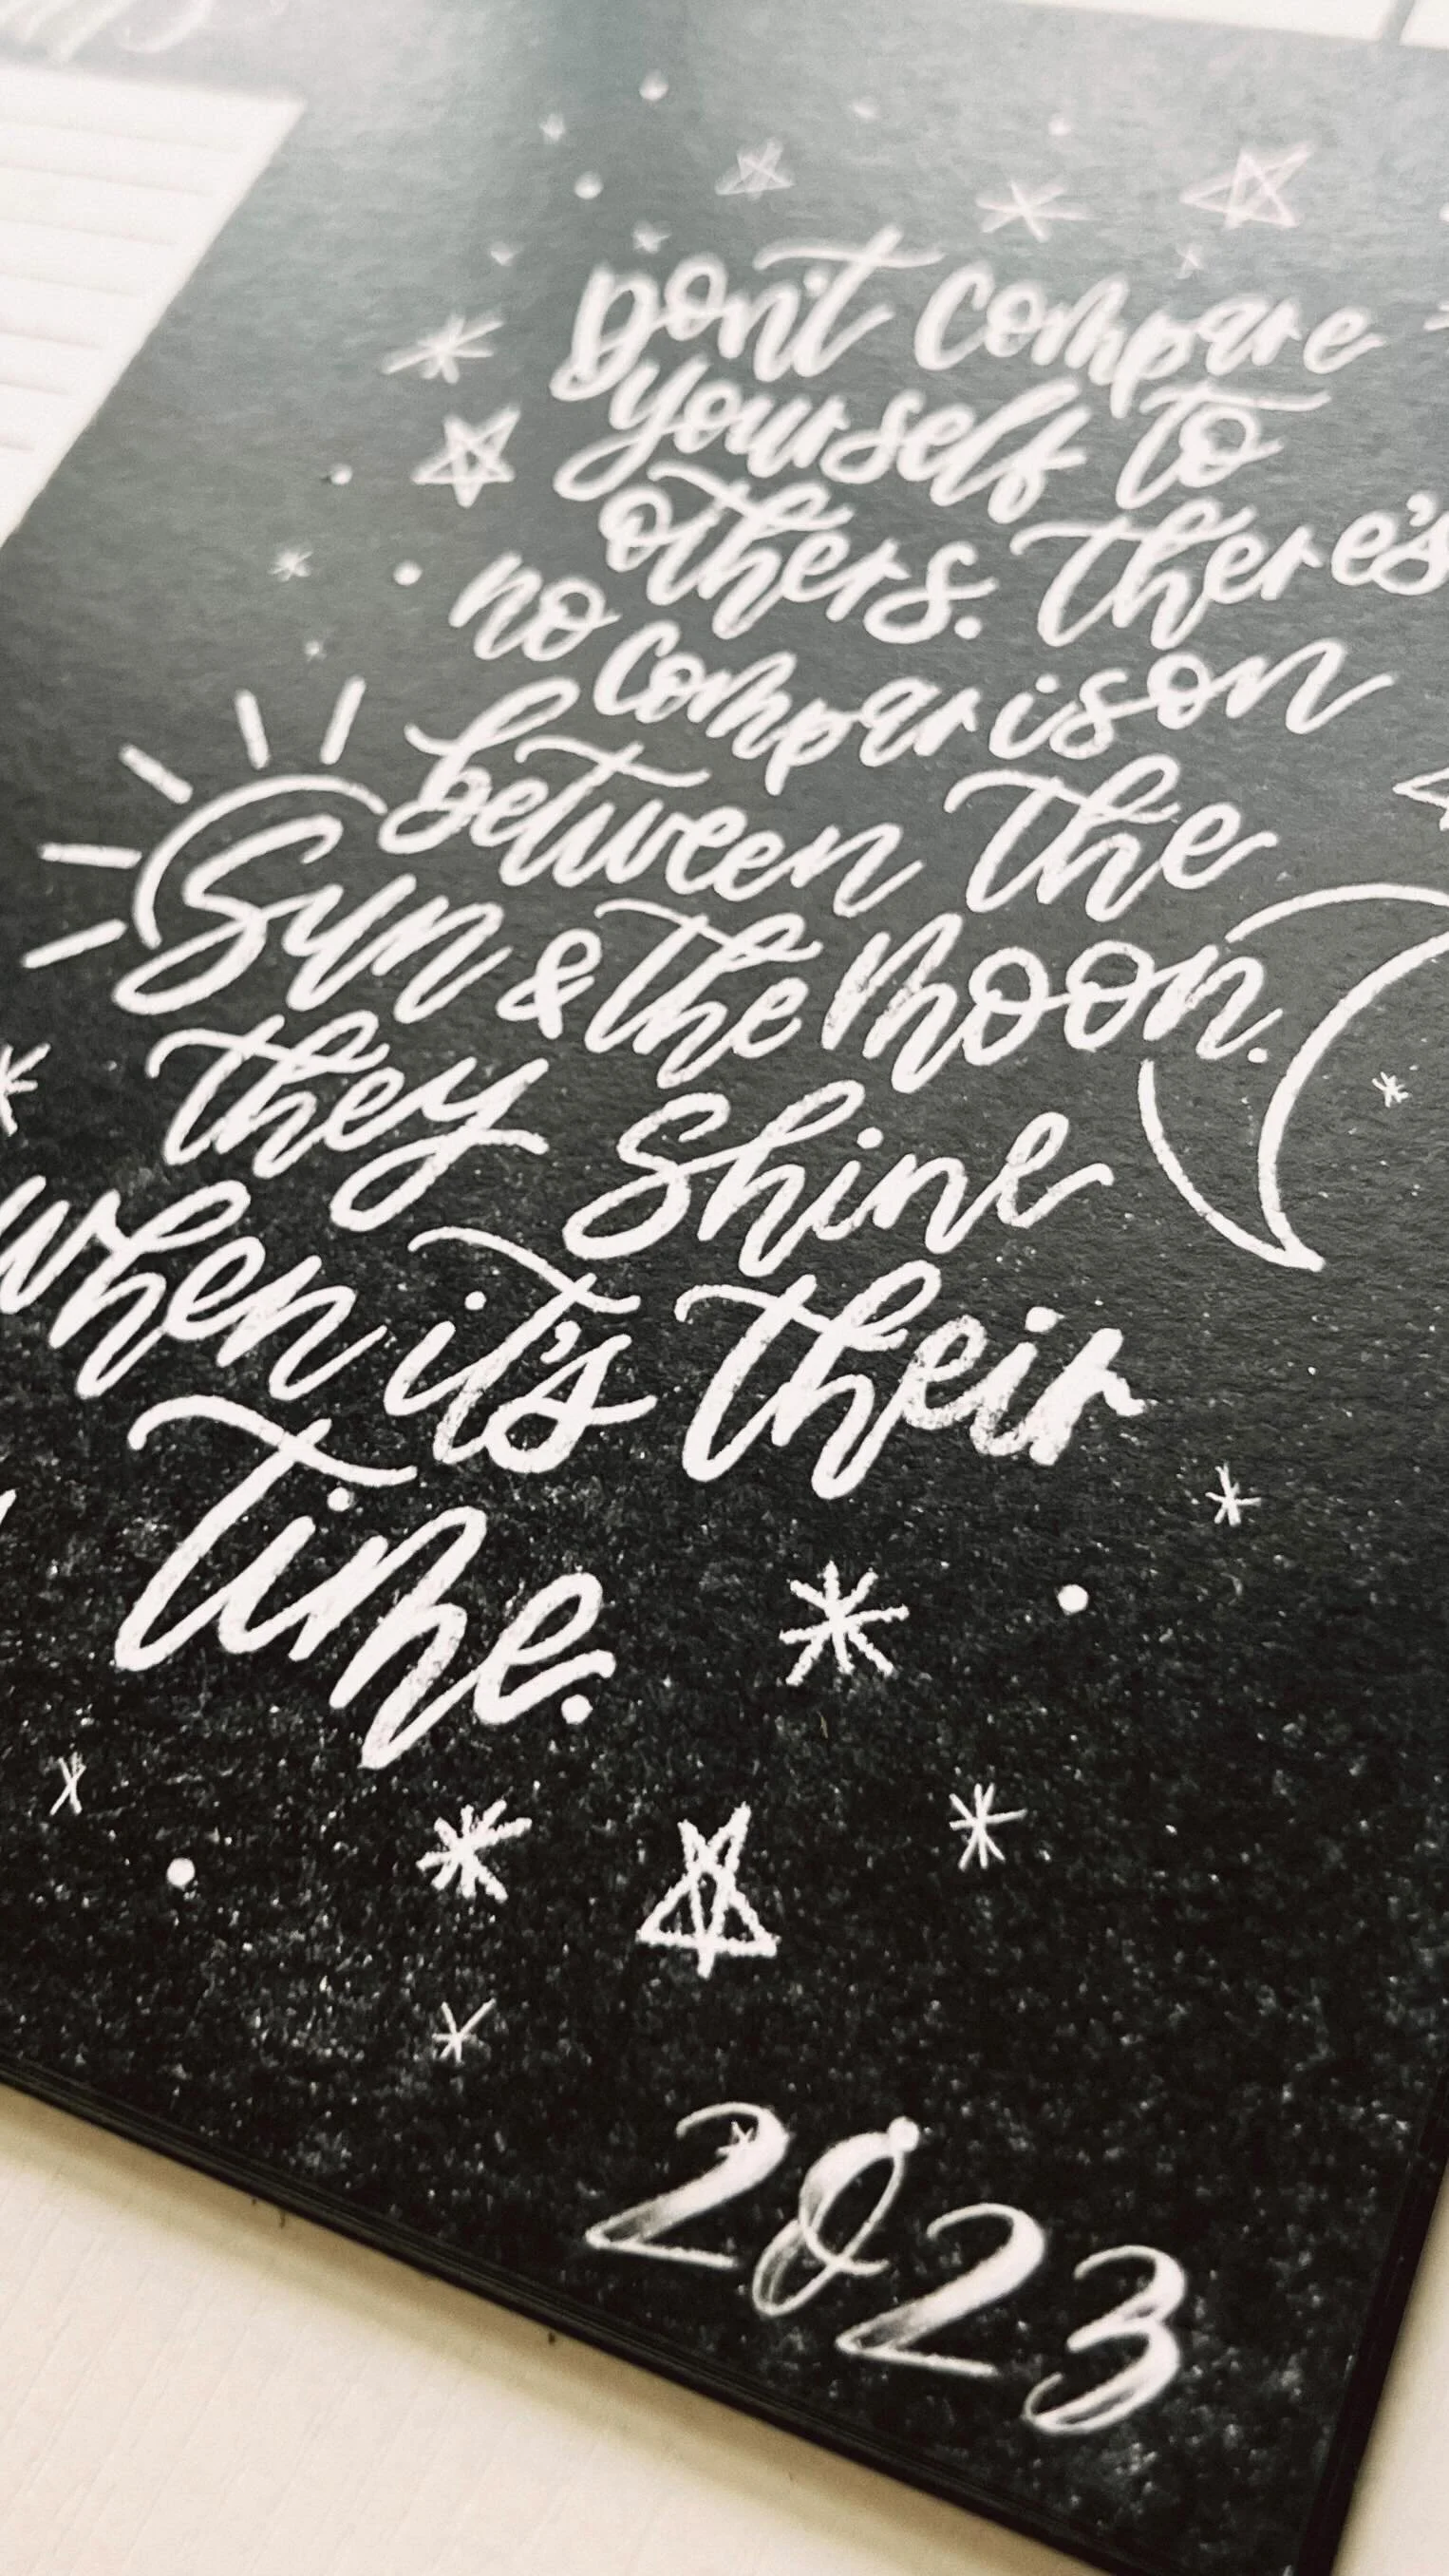 Don't compare
yourself to
others. There's
no comparison
between the
Sun & the Moon.
they shine
when it's their
Time.
2023